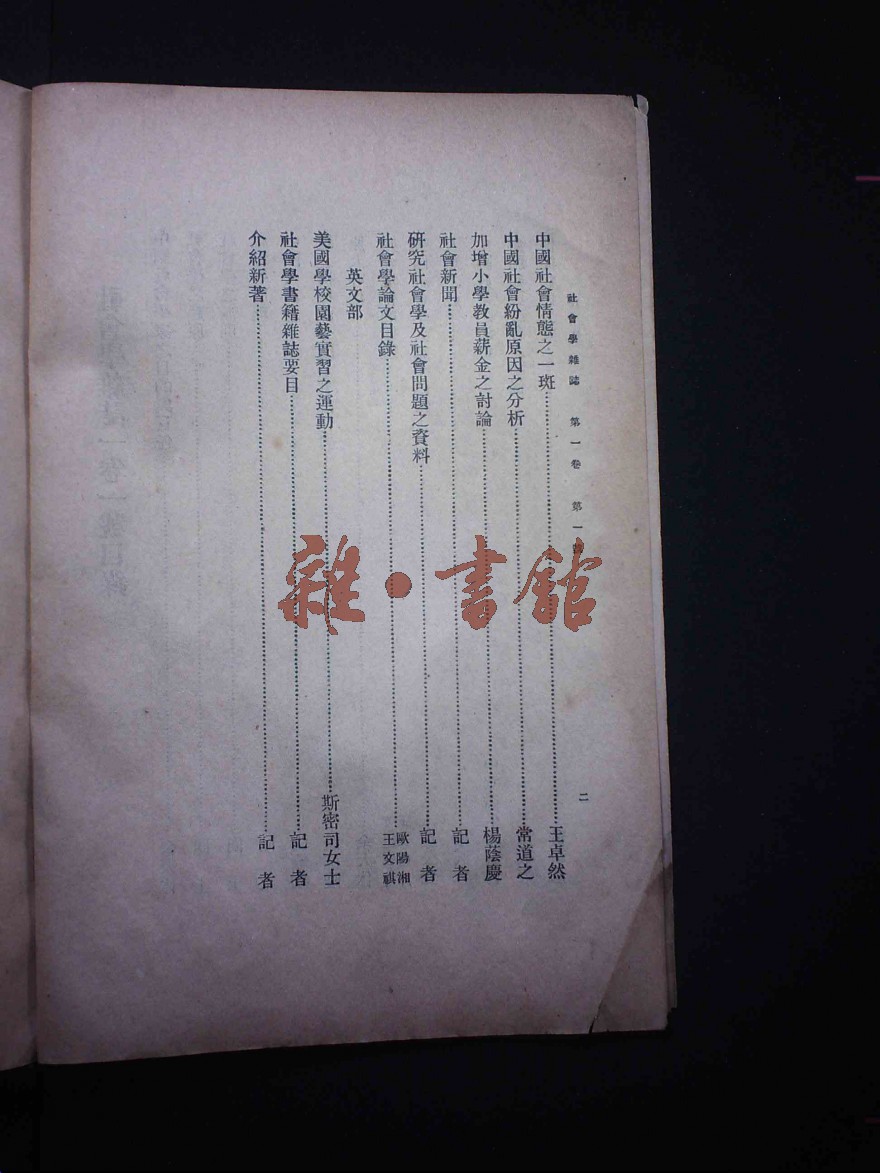 社會學雜誌 第一卷 第一 二
中國社會情態之一斑 王卓然
中國社會紛亂原因之分析 常道之
加增小學教員薪金之討論 楊蔭慶
社會新聞 記者
研究社會學及社會問題之資料 記者
社會學論文目錄 歐陽湘 王文祺
英文部
美國學校園藝實習之運動 斯密司女士
社會學書籍雜誌要目 記者
介紹新著 記者
雜·書館